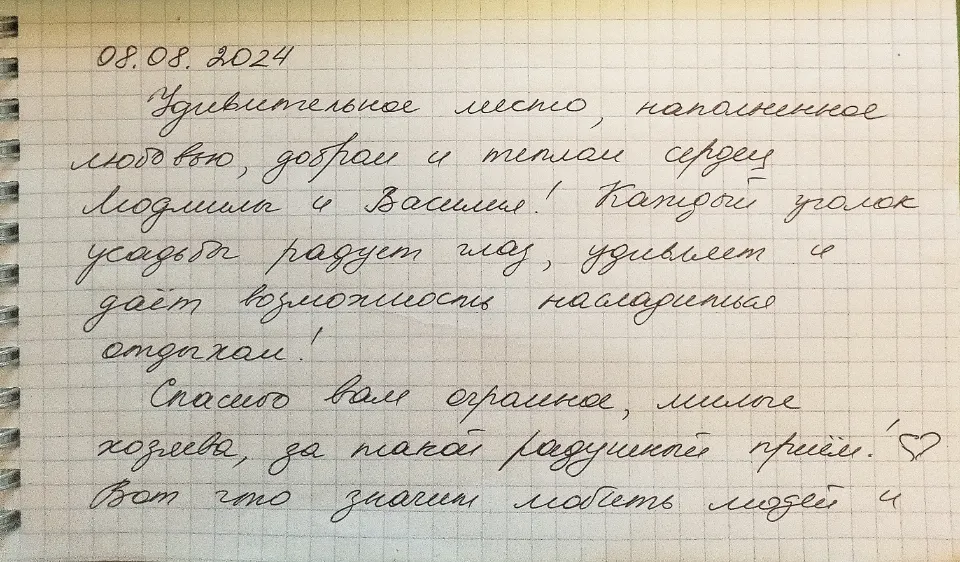 08.08.2024
Удивительное место, наполненное
любовью, добром и теплом сердец
Людмилы и Василия! Каждый уголок
усадьбы радует глаз, удивляет и
даёт возможность насладиться
отдыхом!
Спасибо вам огромное, милые
хозяева, за такой радушный приём! ♡
Вот что значит любить людей и